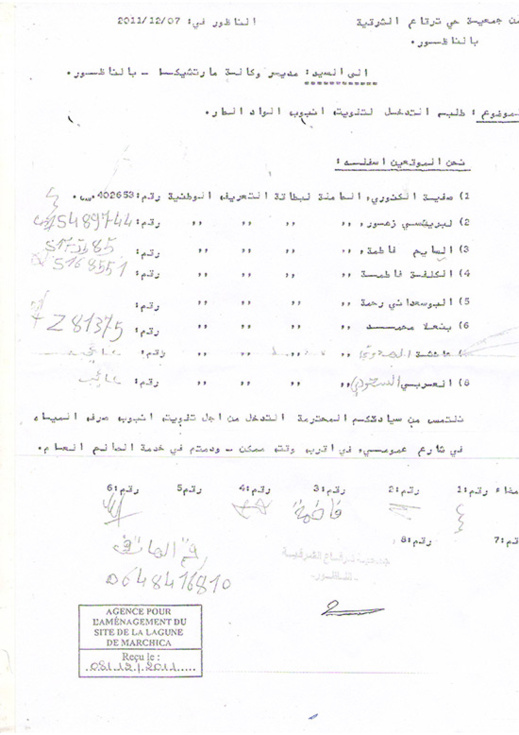 من جمعية حي ترقاع الشرقية
بالناظور.
الناظور في: 2011/12/07
الى السيد: مدير وكالة مارتشيكا - بالناظور.
موضوع: طلب التدخل لتذويت انبوب الواد الحار.
نحن الموقعين اسفله:
1) صفية الكنوري، الحاملة لبطاقة التعريف الوطنية رقم: 402653
2) لبرينسي زعمور، ,, ,, ,, رقم: 5489744
3) السايح فاطمة، ,, ,, ,, رقم:
4) الكلفة فاطمة ,, ,, ,, رقم: S168551
5) البوسعداني رحمة ,, ,, ,, رقم:
6) بنعلا محمد ,, ,, ,, رقم: Z81375
عائشة ,, رقم: غائب
8) العربي ,, ,, ,, رقم: غائب
نلتمس من سيادتكم المحترمة التدخل من اجل تذويت انبوب صرف المياه
في شارع عمومي، في اقرب وقت ممكن - ودمتم في خدمة الصالح العام.
مضاء رقم:1 رقم:2 رقم:3 رقم:4 رقم:5 رقم:6
فاطمة
رقم:7 رقم:8
جمعية ترقاع الشرقية
- الناظور -
رقم الهاتف
0648416810
AGENCE POUR
L'AMÉNAGEMENT DU
SITE DE LA LAGUNE
DE MARCHICA
Reçu le :
08/12/2011